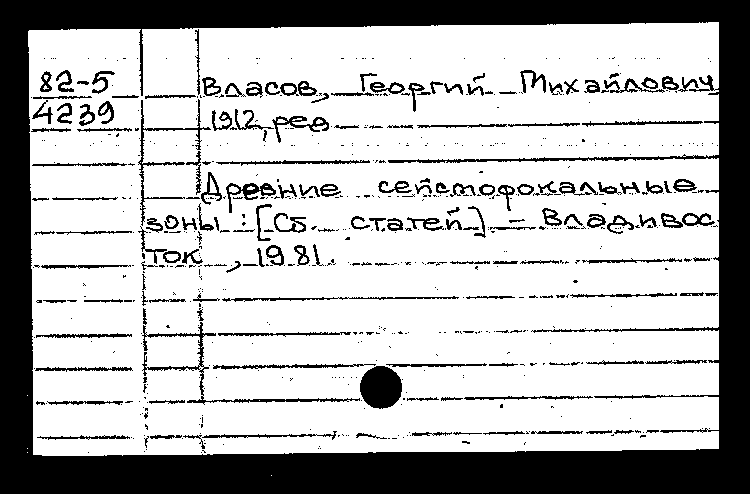 82-5 Власов, Георгий Михайлович
4239 1912, ред.
Древние сейсмофокальные
зоны : [Сб. статей] - Владивос
ток, 1981.